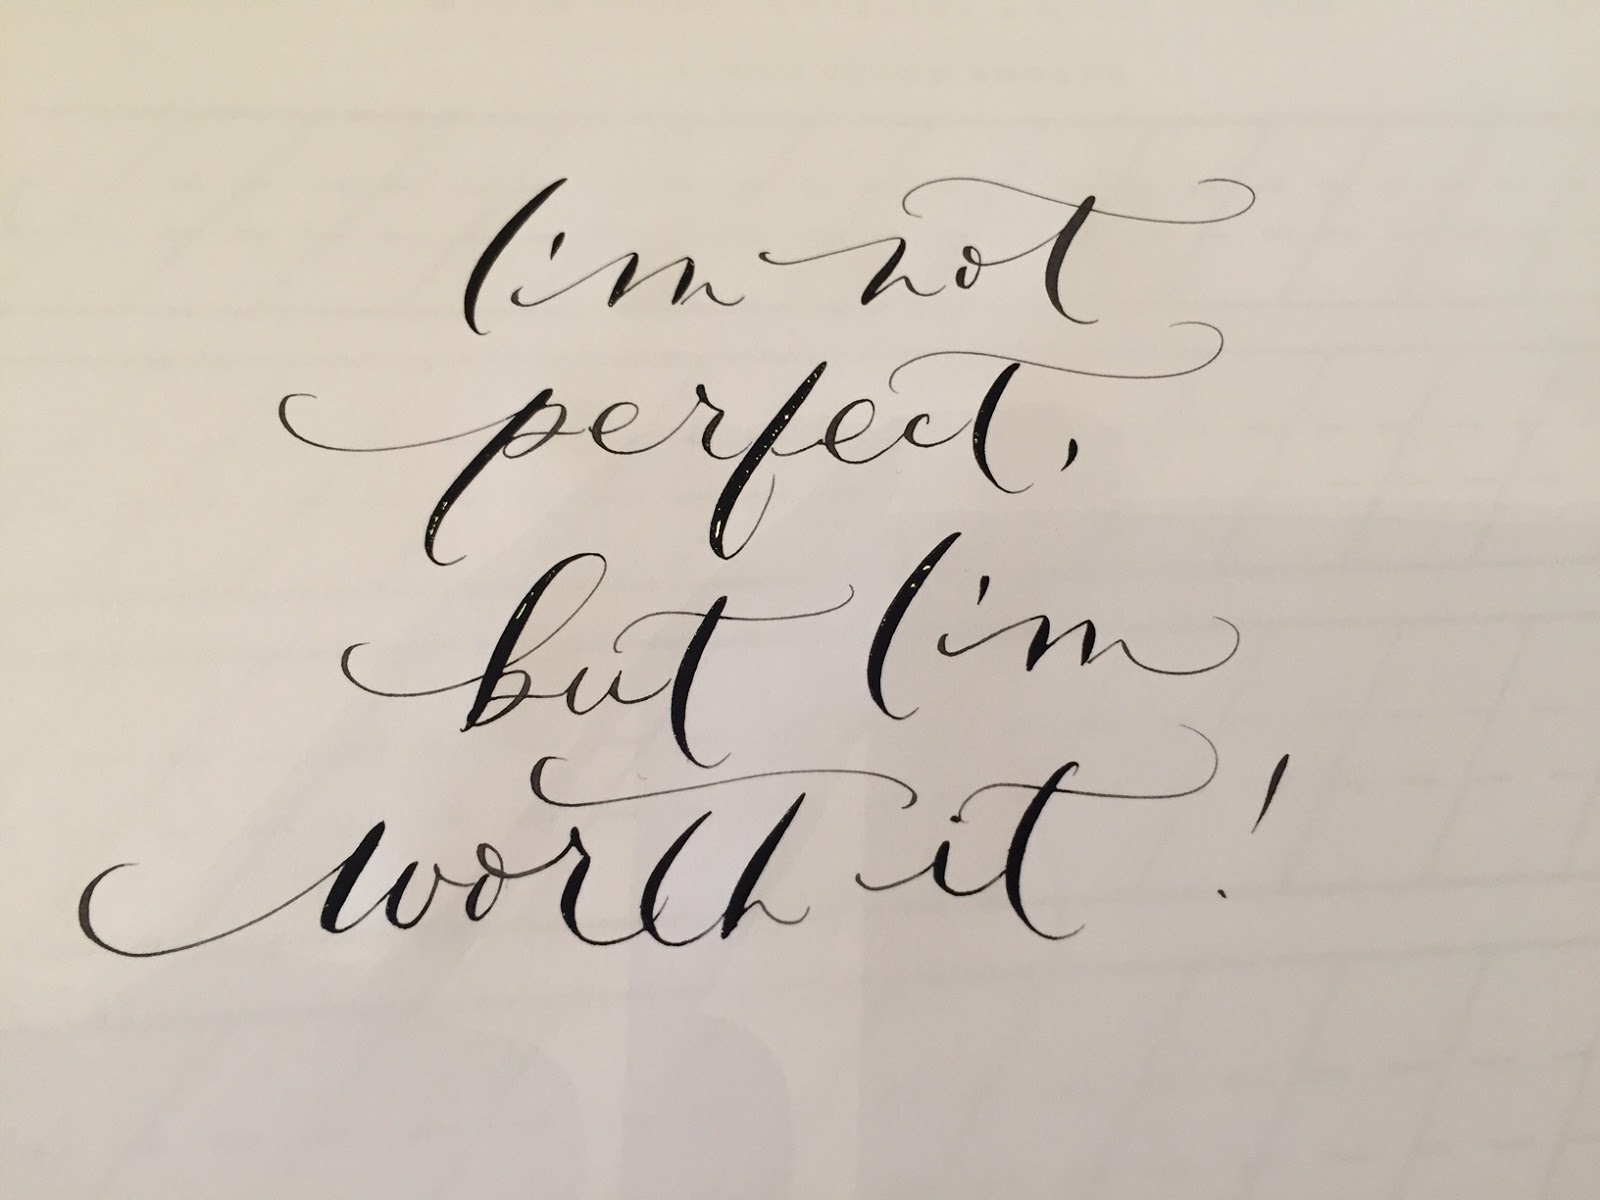 I'm not
perfect,
but I'm
worth it!